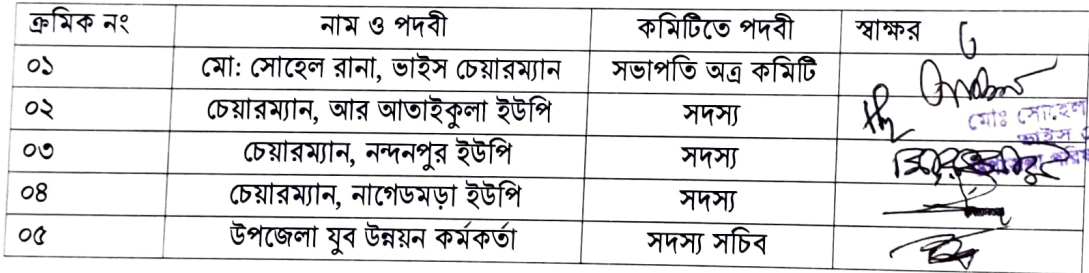 ক্রমিক নং নাম ও পদবী কমিটিতে পদবী স্বাক্ষর
০১ মো: সোহেল রানা, ভাইস চেয়ারম্যান সভাপতি অত্র কমিটি
০২ চেয়ারম্যান, আর আতাইকুলা ইউপি সদস্য
মোঃ সোহেল
ভাইস
০৩ চেয়ারম্যান, নন্দনপুর ইউপি সদস্য
০৪ চেয়ারম্যান, নাগেডমড়া ইউপি সদস্য
০৫ উপজেলা যুব উন্নয়ন কর্মকর্তা সদস্য সচিব